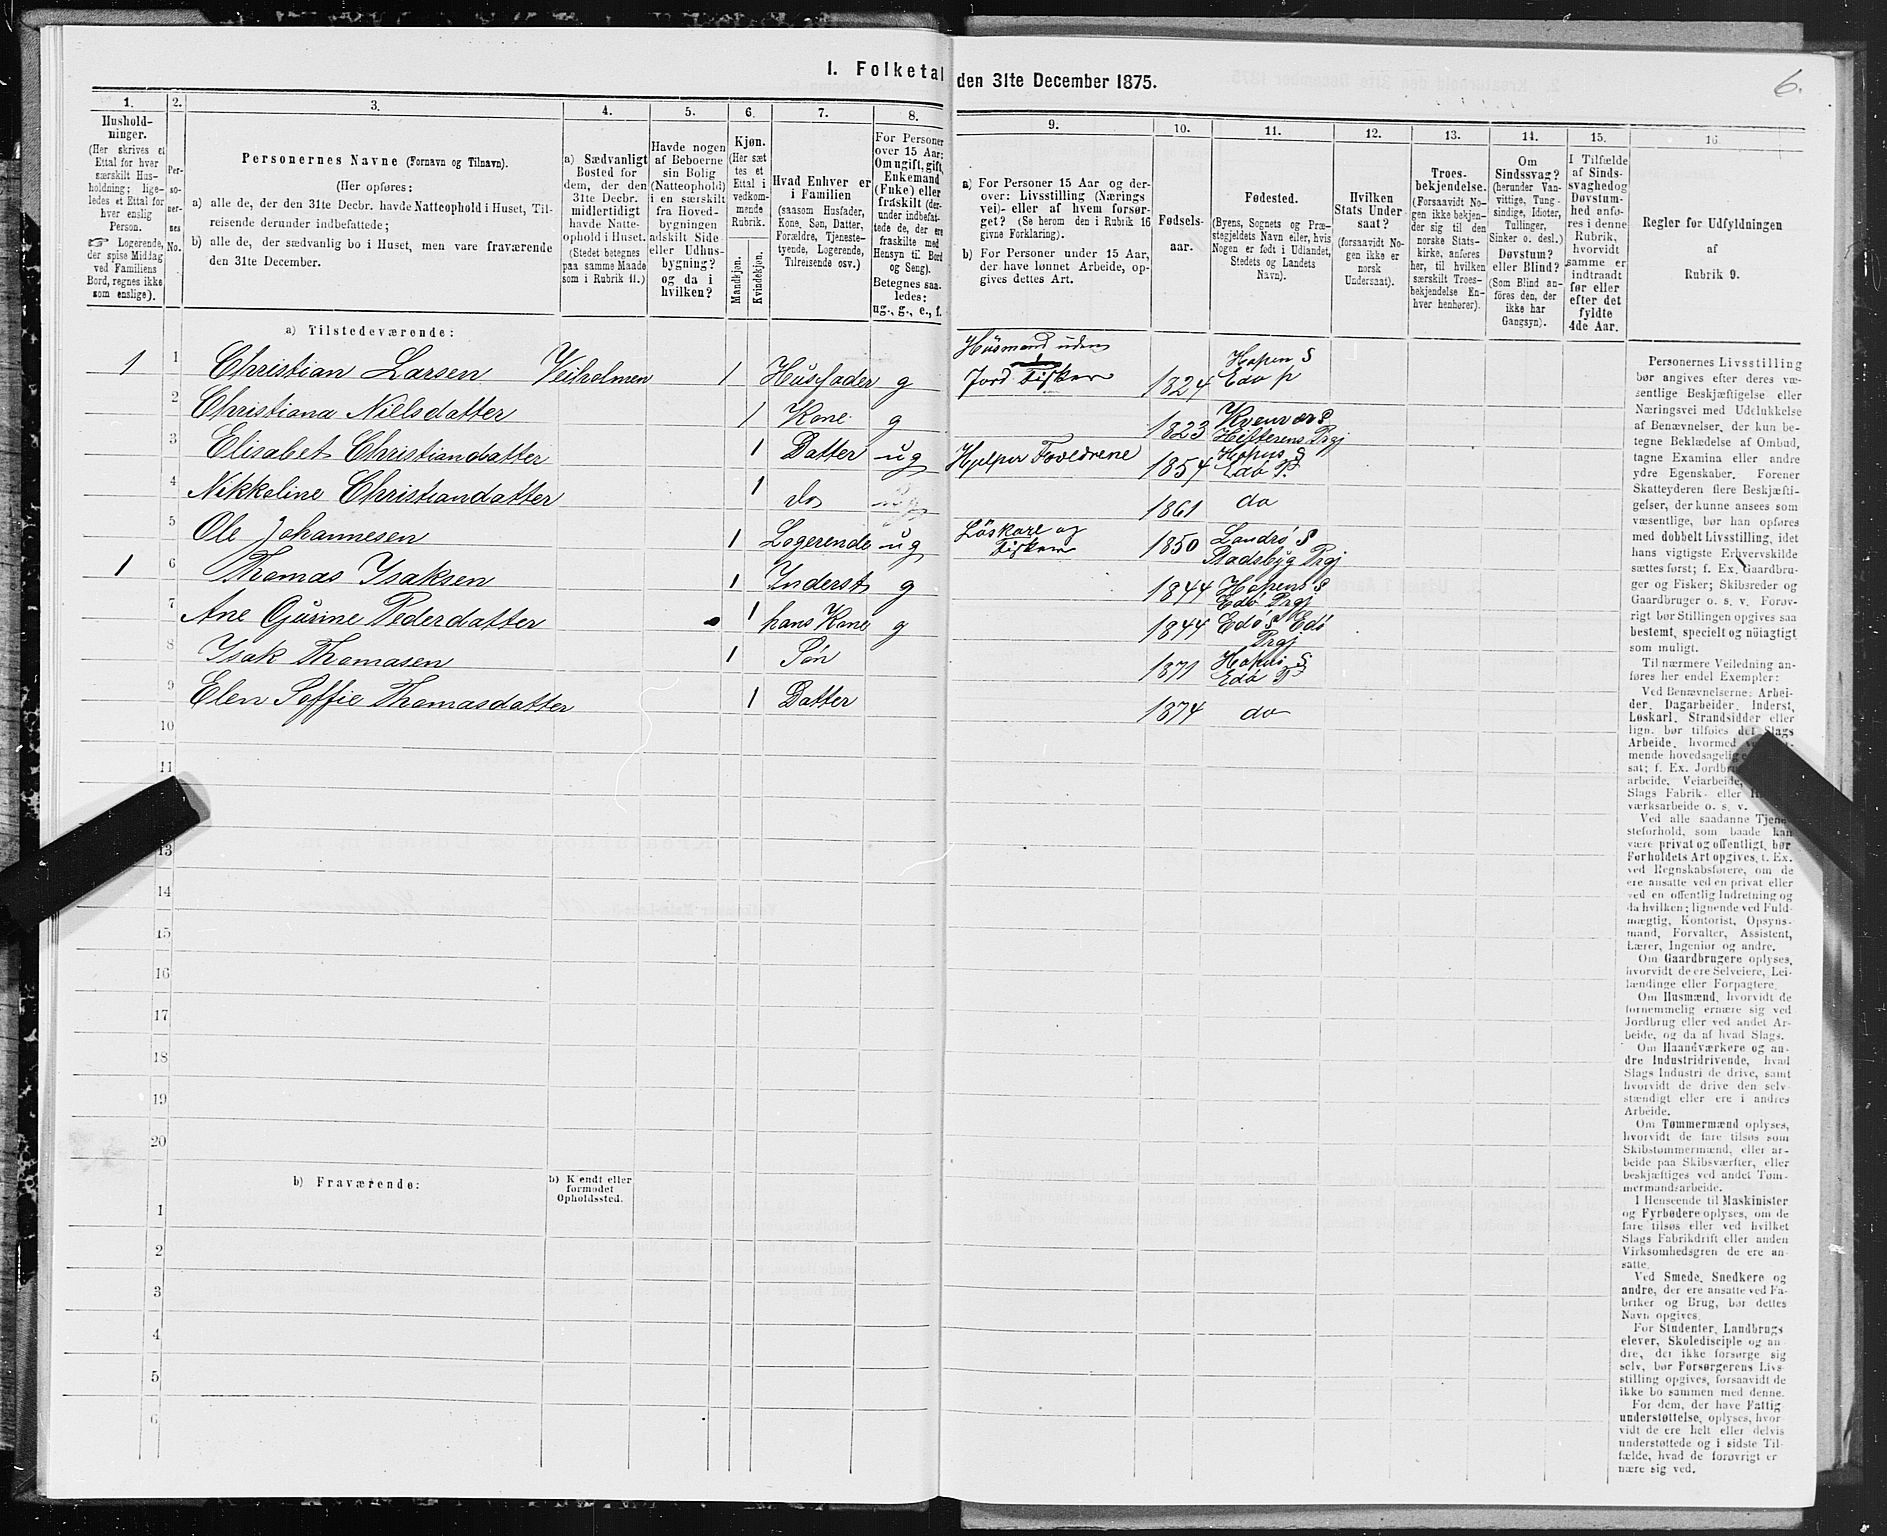 I. Folketal den 31te December 1875.
6.
1.
Hushold-
ninger.
(Her skrives et
Ettal for hver
særskilt Hus-
holdning; lige-
ledes et Ettal for
hver enslig
Person.
☞ Logerende,
der spise Middag
ved Familiens
Bord, regnes ikke
som enslige).
2.
Per-
so-
ner-
nes
No.
3.
Personernes Navne (Fornavn og Tilnavn).
(Her opføres:
a) alle de, der den 31te Decbr. havde Natteophold i Huset, Til-
reisende derunder indbefattede;
b) alle de, der sædvanlig bo i Huset, men vare fraværende
den 31te December.
4.
a) Sædvanligt
Bosted for
dem, der den
31te Decbr.
midlertidigt
havde Natte-
ophold i Huset.
(Stedet betegnes
paa samme Maade
som i Rubrik 11.)
5.
Havde nogen
af Beboerne
sin Bolig
(Natteophold)
i en særskilt
fra Hoved-
bygningen
adskilt Side-
eller Udhus-
bygning?
og da i
hvilken?
6.
Kjøn.
(Her sæt-
tes et
Ettal i
vedkom-
mende
Rubrik.
Mandkjøn.
Kvindekjøn.
7.
Hvad Enhver er
i Familien
(saasom Husfader,
Kone, Søn, Datter,
Forældre, Tjeneste-
tyende, Logerende,
Tilreisende osv.)
8.
For Personer
over 15 Aar:
Om ugift, gift,
Enkemand
(Enke) eller
fraskilt (der-
under indbefat-
tede de, der ere
fraskilte med
Hensyn til Bord
og Seng).
Betegnes saa-
ledes:
ug., g., e., f.
9.
a) For Personer 15 Aar og der-
over: Livsstilling (Nærings
vei)- eller af hvem forsør-
get? (Se herom den i Rubrik 16
givne Forklaring).
b) For Personer under 15 Aar,
der have lønnet Arbeide, op-
gives dettes Art.
10.
Fødsels-
aar.
11.
Fødested.
(Byens, Sognets og Præ-
stegjeldets Navn eller, hvis
Nogen er født i Udlandet,
Stedets og Landets
Navn).
12.
Hvilken
Stats Under
saat?
(forsaavidt No-
gen ikke er
norsk
Undersaat).
13.
Troes-
bekjendelse.
(Forsaavidt No-
gen ikke bekjen-
der sig til den
norske Stats-
kirke, anføres
her, til hvilken
særskilt Troes-
bekjendelse En-
hver henhører).
14.
Om
Sindssvag?
(herunder Van-
vittige, Tung-
sindige, Idioter,
Tullinger,
Sinker o. desl.)
Døvstum?
eller Blind?
(Som Blind an-
føres den, der
ikke har
Gangsyn).
15.
I Tilfælde
af Sinds-
svaghedog
Døvstum-
hed anfø-
res i denne
Rubrik,
hvorvidt
samme er
indtraadt
før eller
efter det
fyldte
4de Aar.
16.
Regler for Udfyldningen
af
Rubrik 9.
a) Tilstedeværende:
1 1 Christian Larsen Veiholmen 1 Husfader g Husmand uden Jord Fisker 1824 Hopen S Edø P
2 Christiana Nielsdatter 1 Kone g 1823 Kvenvær S Hitterens Prgj
3 Elisabet Christiandatter 1 Datter ug Hjelper Foreldrene 1854 Hopens S Edø P.
4 Nikkoline Christiandatter 1 do 1861 do
5 Ole Johannesen 1 Logerende ug Løskarl og Fisker 1850 Landrø S Stadsbyg Prgj
1 6 Thomas Isaksen 1 Inderst g 1844 Hopens S Edø Prgj
7 Ane Gurine Pederdatter 1 hans Kone g 1844 Edø S Edø Prgj
8 Isak Thomasen 1 Søn 1871 Hopens S Edø P
9 Elen Soffie Thomasdatter 1 Datter 1874 do
10
11
13
14
15
16
17
18
19
20
b) Fraværende:
b) Kjendt eller
formodet
Opholdssted.
1
2
3
4
5
6
Personernes Livsstilling
bør angives efter deres væ-
sentlige Beskjæftigelse eller
Næringsvei med Udelukkelse
af Benævnelser, der kun be-
tegne Beklædelse af Ombud,
tagne Examina eller andre
ydre Egenskaber. Forener
Skatteyderen flere Beskjæfti-
gelser, der kunne ansees som
væsentlige, bør han opføres
med dobbelt Livsstilling, idet
hans vigtigste Erhvervskilde
sættes først; f. Ex. Gaardbru-
ger og Fisker; Skibsreder og
Gaardbruger o. s. v. Forøv-
rigt bør Stillingen opgives saa
bestemt, specielt og nøiagtigt
som muligt.
Til nærmere Veiledning an-
føres her endel Exempler:
Ved Benævnelserne: Arbei-
der, Dagarbeider, Inderst,
Løskarl, Strandsidder eller
lign. bør tilføies det Slags
Arbeide, hvormed
mende hovedsagelig
sat; f. Ex. Jordbr
arbeide, Veiarbeide,
Slags Fabrik- eller
værksarbeide o. s. v.
Ved alle saadanne Tjene
steforhold, som baade kan
være privat og offentligt, bør
Forholdets Art opgives, t. Ex.
ved Regnskabsførere, om de
ere ansatte ved en privat eller
ved en offentlig Indretning og
da hvilken; lignende ved Fuld-
mægtig, Kontorist, Opsyns-
mand, Forvalter, Assistent,
Lærer, Ingeniør og andre.
Om Gaardbrugere oplyses,
hvorvidt de ere Selveiere, Lei-
lændinge eller Forpagtere.
Om Husmænd, hvorvidt de
fornemmelig ernære sig ved
Jordbrug eller ved andet Ar-
beide, og da af hvad Slags.
Om Haandværkere og an-
dre Industridrivende, hvad
Slags Industri de drive, samt
hvorvidt de drive den selv-
stændigt eller ere i andres
Arbeide.
Om Tømmermænd oplyses,
hvorvidt de fare tilsøs som
Skibstømmermænd, eller ar-
beide paa Skibsværfter, eller
beskjæftiges ved andet Tøm-
mermandsarbeide.
I Henseende til Maskinister
og Fyrbødere oplyses, om de
fare tilsøs eller ved hvilket
Slags Fabrikdrift eller anden
Virksomhedsgren de ere an-
satte.
Ved Smede, Snedkere og
andre, der ere ansatte ved Fa-
briker og Brug, bør dettes
Navn opgives.
For Studenter, Landbrugs
elever, Skoledisciple og an-
dre, der ikke forsørge sig
selv, bør Forsørgerens Livs-
stilling opgives, forsaavidt de
ikke bo sammen med denne.
For dem, der have Fattig
understøttelse, oplyses, hvor
vidt de ere helt eller delvis
understøttede og i sidste Til-
fælde, hvad de forøvrigt er
nære sig ved.